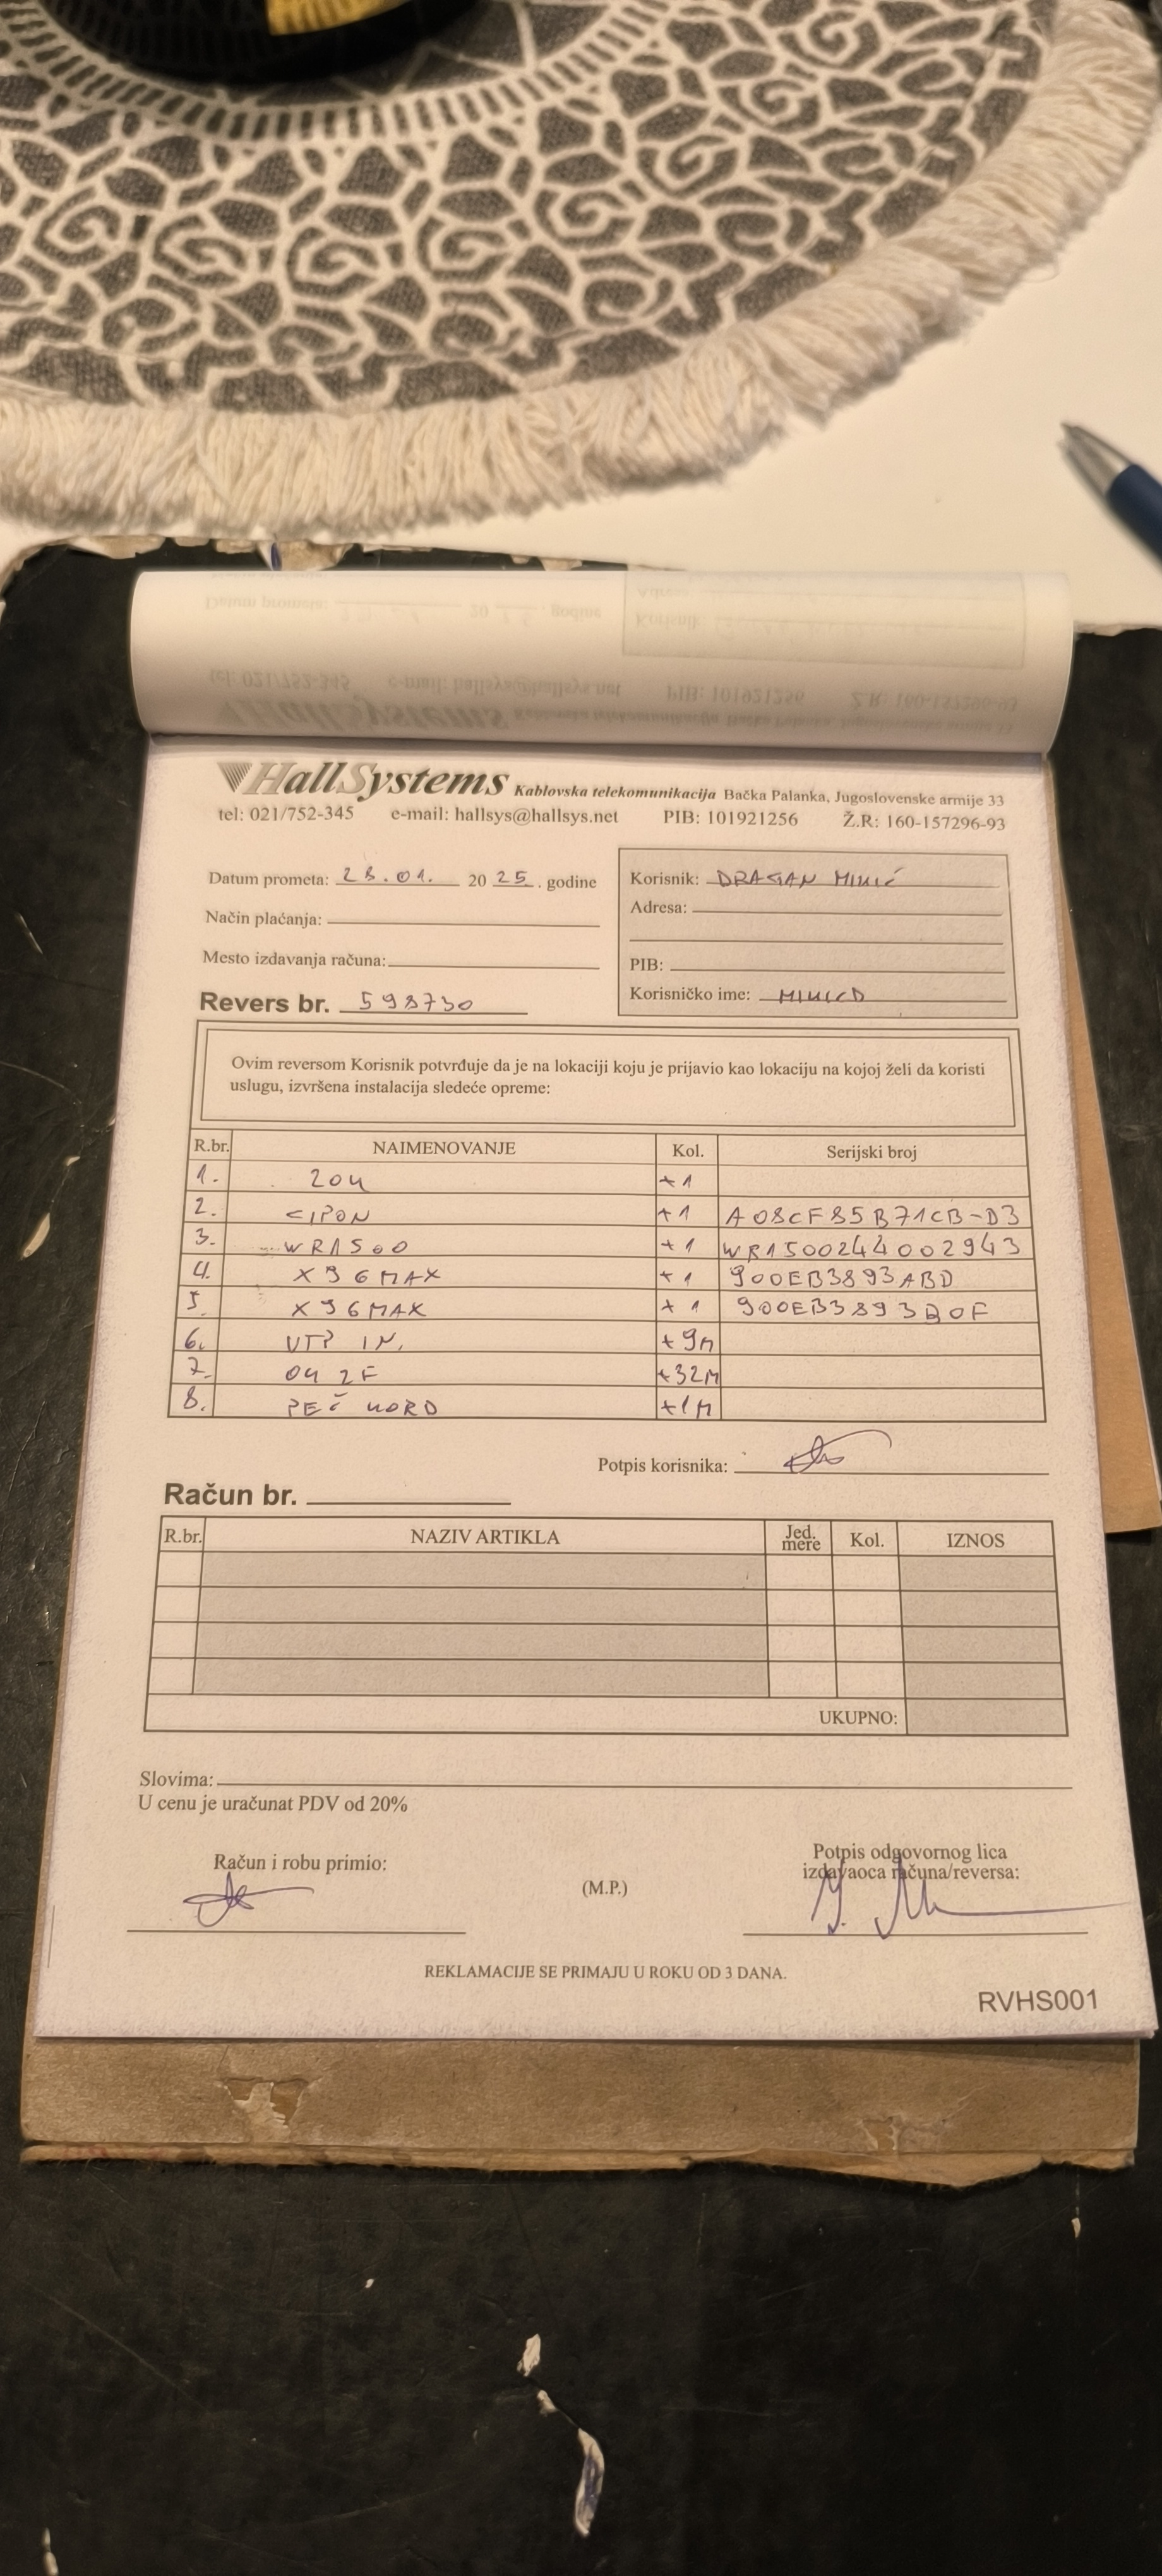 HallSystems Kablovska telekomunikacija Bačka Palanka, Jugoslovenske armije 33
tel: 021/752-345 e-mail: hallsys@hallsys.net PIB: 101921256 Ž.R: 160-157296-93
Datum prometa: 28.01. 20 25. godine
Način plaćanja:
Mesto izdavanja računa:
Revers br. 598730
Korisnik: DRAGAN MINIĆ
Adresa:
PIB:
Korisničko ime: MINICD
Ovim reversom Korisnik potvrđuje da je na lokaciji koju je prijavio kao lokaciju na kojoj želi da koristi
uslugu, izvršena instalacija sledeće opreme:
R.br. NAIMENOVANJE Kol. Serijski broj
1. ZOK +1
2. CIPON +1 A08CF85B71CB-D3
3. WR1500 +1 WR1500244002943
4. X96MAX +1 900EB3893ABD
5. X96MAX +1 900EB3893B0F
6. UTP IN. +9M
7. OK 2F +32M
8. +1M
Potpis korisnika:
Račun br.
R.br. NAZIV ARTIKLA Jed. mere Kol. IZNOS
UKUPNO:
Slovima:
U cenu je uračunat PDV od 20%
Račun i robu primio:
(M.P.)
Potpis odgovornog lica
izdavaoca računa/reversa:
REKLAMACIJE SE PRIMAJU U ROKU OD 3 DANA.
RVHS001